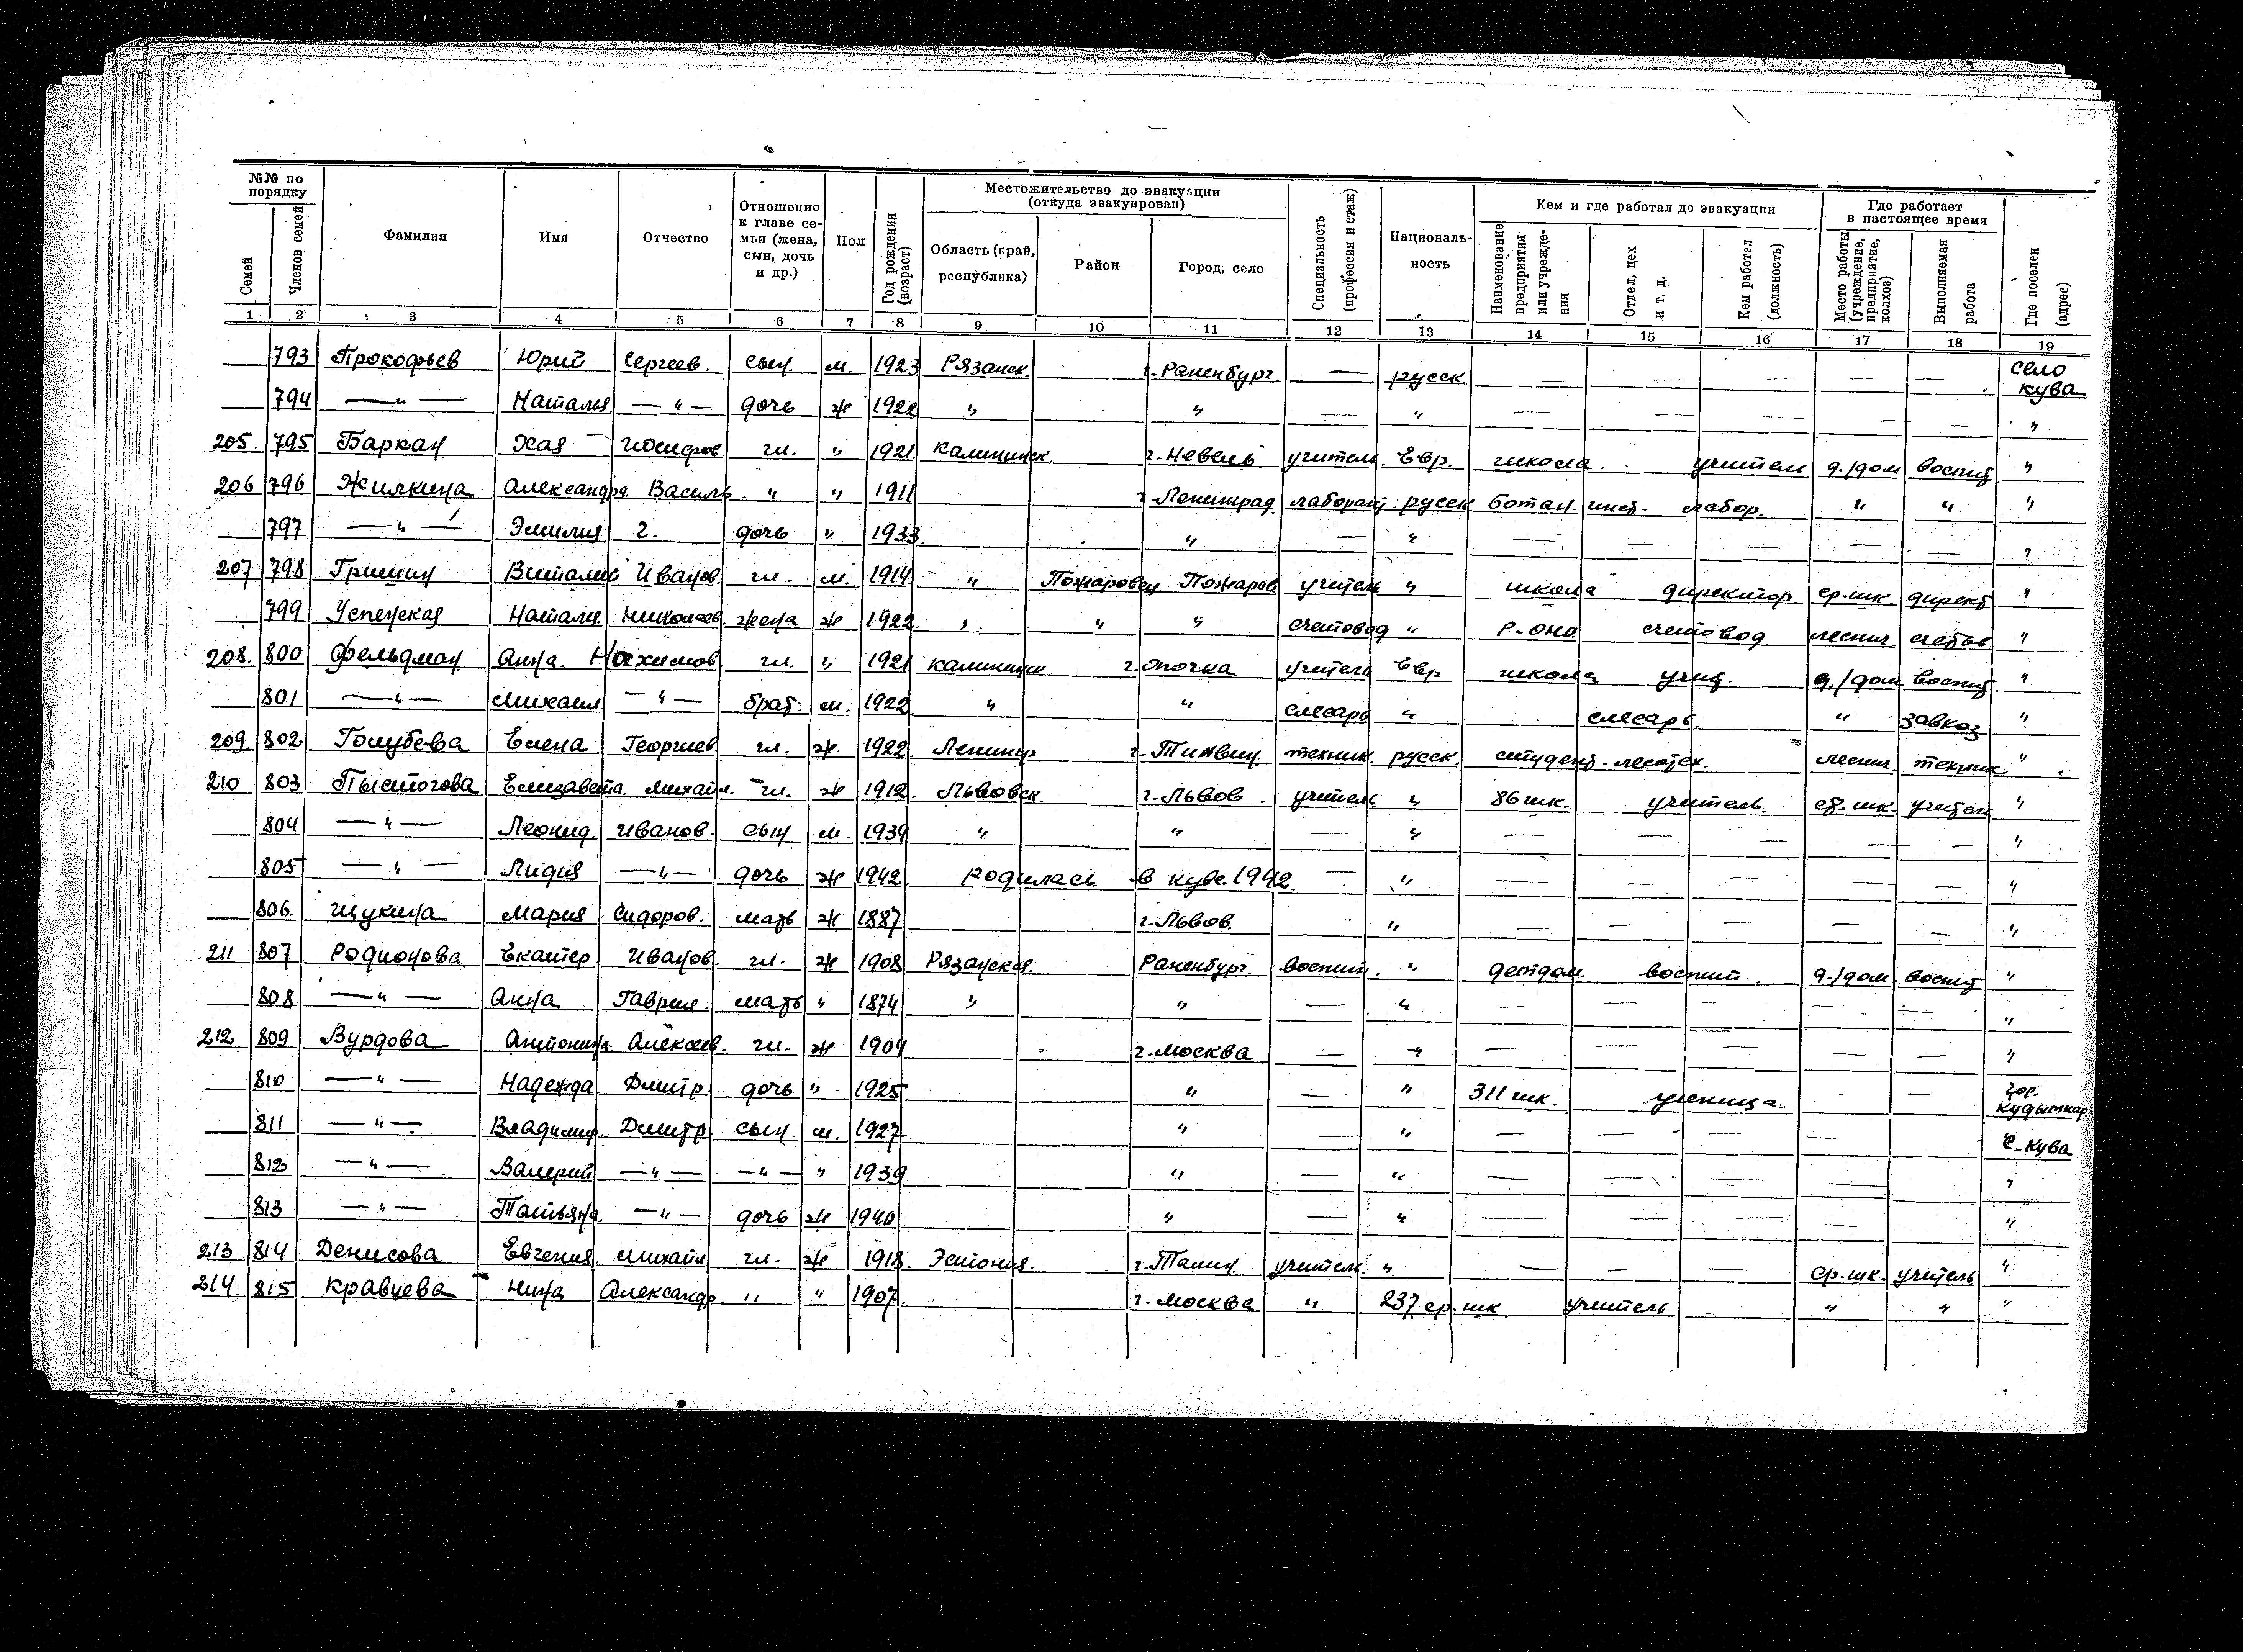 №№ по порядку Фамилия Имя Отчество Отношение к главе семьи (жена, сын, дочь и др.) Пол Год рождения (возраст) Местожительство до эвакуации (откуда эвакуирован) Специальность (профессия и стаж) Националь-ность Кем и где работал до эвакуации Где работает в настоящее время Где поселен (адрес)
Семей Членов семей Область (край, республика) Район Город, село Наименование предприятия или учрежде-ния Отдел, цех и т. д. Кем работал (должность) Место работы (учреждение, предприятие, колхоз) Выполняемая работа
1 2 3 4 5 6 7 8 9 10 11 12 13 14 15 16 17 18 19
793 Прокофьев Юрий Сергеев. сын м. 1923 Рязанск г. Раненбург — русск — — — — — село Кува
794 — " — Наталья — " — дочь ж 1922 " " — " — — — — — "
205. 795 Баркан Хая Иосифов гл. " 1921 Калининск. г. Невель учитель Евр. школа учител д./дом воспит "
206 796 Жилкина Александра Василь. " " 1911 г. Ленинград лаборант русск ботан. инст. лабор. " " "
797 — " — Эмилия Г. дочь " 1933 " — " — — — — — "
207 798 Гришин Виталий Иванов. гл. м. 1914 " Пожаровец Пожаров учитель " школа директор ср. шк директ "
799 Успенская Наталия Николаев жена ж 1922 " " " счетовод " Р-оно счетовод леснич. счетов "
208. 800 Фельдман Анна Нахимов гл. " 1921 Калинин г. Опочка учитель Евр школа учит. д./дом воспит. "
801 — " — Михаил — " — брат. м. 1922 " " слесарь " слесарь. " завхоз "
209. 802 Голубева Елена Георгиев гл. ж. 1922 Ленингр г. Тихвин. техник русск. студент-лесотех. леснич. техник "
210 803 Пыстогова Елизавета Михайл. гл. ж 1912. Львовск. г. Львов учитель " 86 шк. учитель. ср. шк. учител "
804 — " — Леонид. Иванов. сын м. 1939 " " — " — — — — — "
805 — " — Лидия — " — дочь ж 1942 родилась в Куве 1942 — " — — — — "
806. Щукина Мария Сидоров. мать ж 1887 г. Львов. " — — — — — "
211 807 Родионова Екатер Иванов. гл. ж 1908 Рязанская. Раненбург. воспит. " детдом. воспит. д./дом. воспит "
808 — " — Анна Гаврил. мать " 1874 " " — " — — — — — "
212 809 Вурдова Антонина. Алексеев. гл. ж 1904 г. Москва — " — — — — — "
810 — " — Надежда Дмитр дочь " 1925 " — " 311 шк. ученица. — гор. Кудымкар
811 — " — Владимир. Дмитр сын. м. 1927 " — " — — — — с. Кува
812 — " — Валерий — " — — " — " 1939 " — " — — — — "
813 — " — Татьяна. — " — дочь ж 1940 " — " — — — — "
213 814 Денисова Евгения Михайл гл. ж 1918. Эстония. г. Талин. учитель. " — — — ср. шк. учитель "
214. 815 Кравцева Нина Александр. " " 1907. г. Москва " 237 ср. шк учитель — " " "